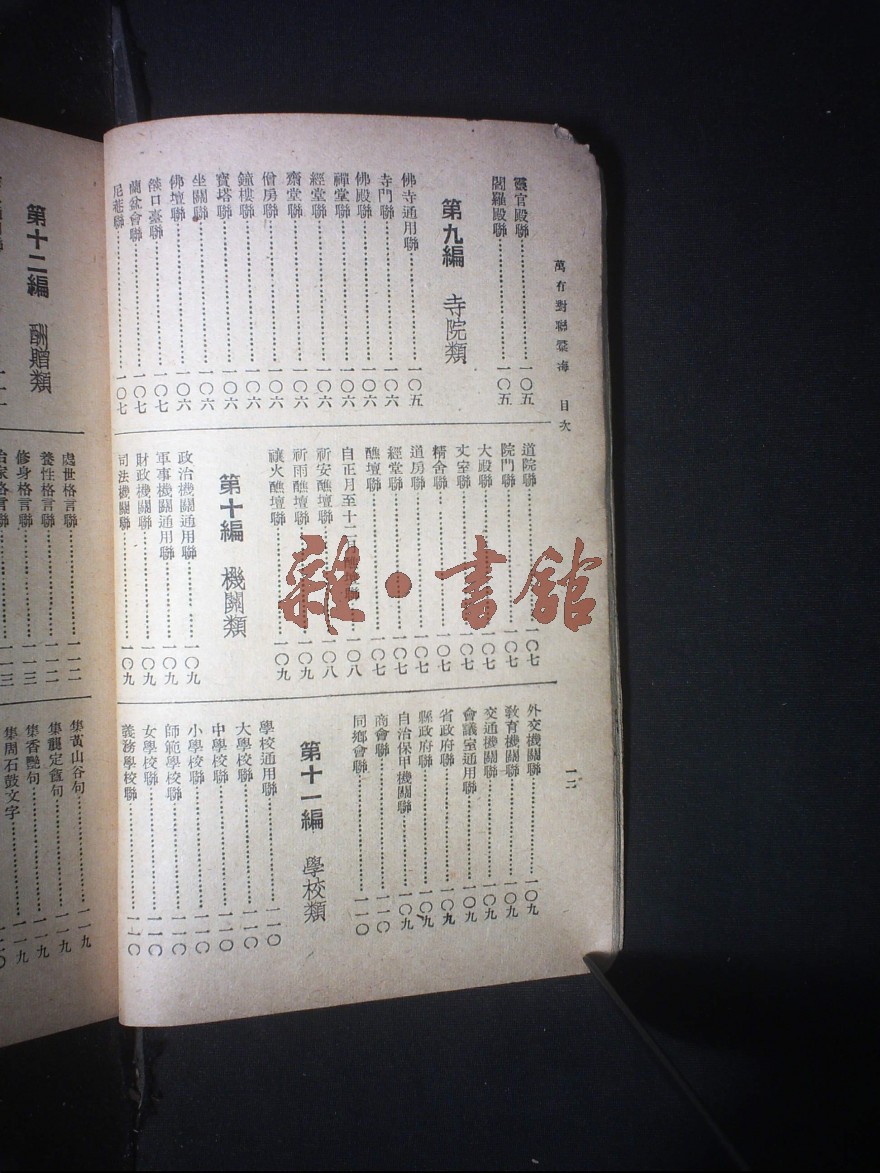 萬有對聯彙海 目次
一二
靈官殿聯 一〇五
閻羅殿聯 一〇五
第九編 寺院類
佛寺通用聯 一〇五
寺門聯 一〇六
佛殿聯 一〇六
禪堂聯 一〇六
經堂聯 一〇六
齋堂聯 一〇六
僧房聯 一〇六
鐘樓聯 一〇六
寶塔聯 一〇六
坐關聯 一〇六
佛壇聯 一〇六
燄口臺聯 一〇七
蘭盆會聯 一〇七
尼菴聯 一〇七
道院聯 一〇七
院門聯 一〇七
大殿聯 一〇七
丈室聯 一〇七
精舍聯 一〇七
道房聯 一〇七
經堂聯 一〇七
醮壇聯 一〇七
自正月至十二月 聯 一〇八
祈安醮壇聯 一〇八
祈雨醮壇聯 一〇九
禳火醮壇聯 一〇九
第十編 機關類
政治機關通用聯 一〇九
軍事機關通用聯 一〇九
財政機關聯 一〇九
司法機關聯 一〇九
外交機關聯 一〇九
教育機關聯 一〇九
交通機關聯 一〇九
會議室通用聯 一〇九
省政府聯 一〇九
縣政府聯 一〇九
自治保甲機關聯 一〇九
商會聯 一一〇
同鄉會聯 一一〇
第十一編 學校類
學校通用聯 一一〇
大學校聯 一一〇
中學校聯 一一〇
小學校聯 一一〇
師範學校聯 一一〇
女學校聯 一一〇
義務學校聯 一一〇
第十二編 酬贈類
處世格言聯 一一二
養性格言聯 一一二
修身格言聯 一一三
治家格言聯 一一三
集黃山谷句 一一九
集龔定盦句 一一九
集香艷句 一一九
集周石鼓文字 一二〇
雜·書館